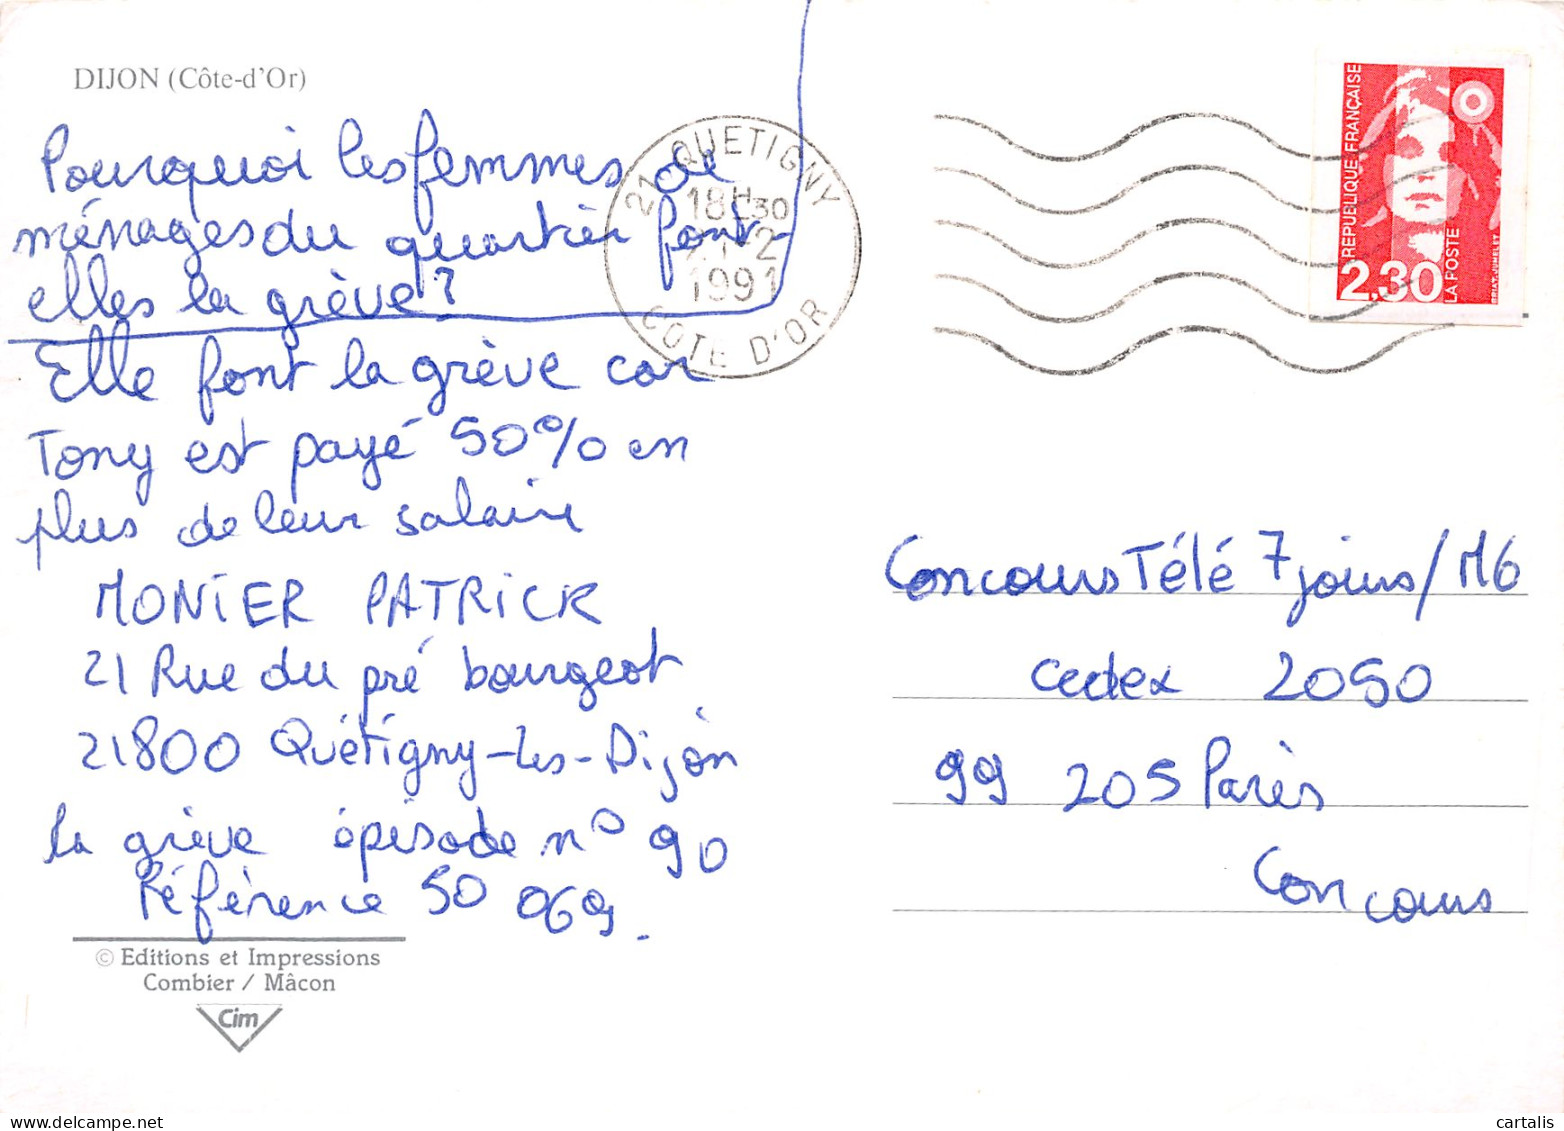 DIJON (Côte-d'Or)
Pourquoi les femmes de
ménages du quartier font-
elles la grève?
Elle font la grève car
Tony est payé 50% en
plus de leur salaire
MONIER PATRICK
21 Rue du pré bourgeot
21800 Quétigny-les-Dijon
la grève épisode n° 90
Référence 50 069.
© Editions et Impressions
Combier / Mâcon
Cim
21 QUETIGNY
18H30
-2
1991
COTE D'OR
RÉPUBLIQUE FRANÇAISE
2,30
LA POSTE
Concours Télé 7 jours/M6
cedex 2050
99 205 Paris
Concours
cartalis